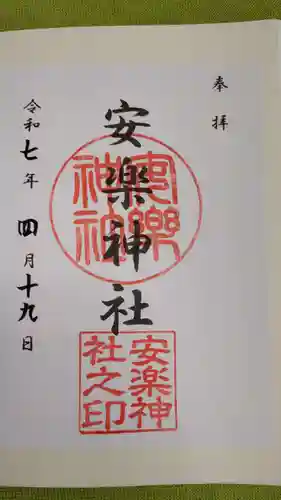 奉拝
安楽神社
安樂神社
安楽神社之印
令和七年四月十九日